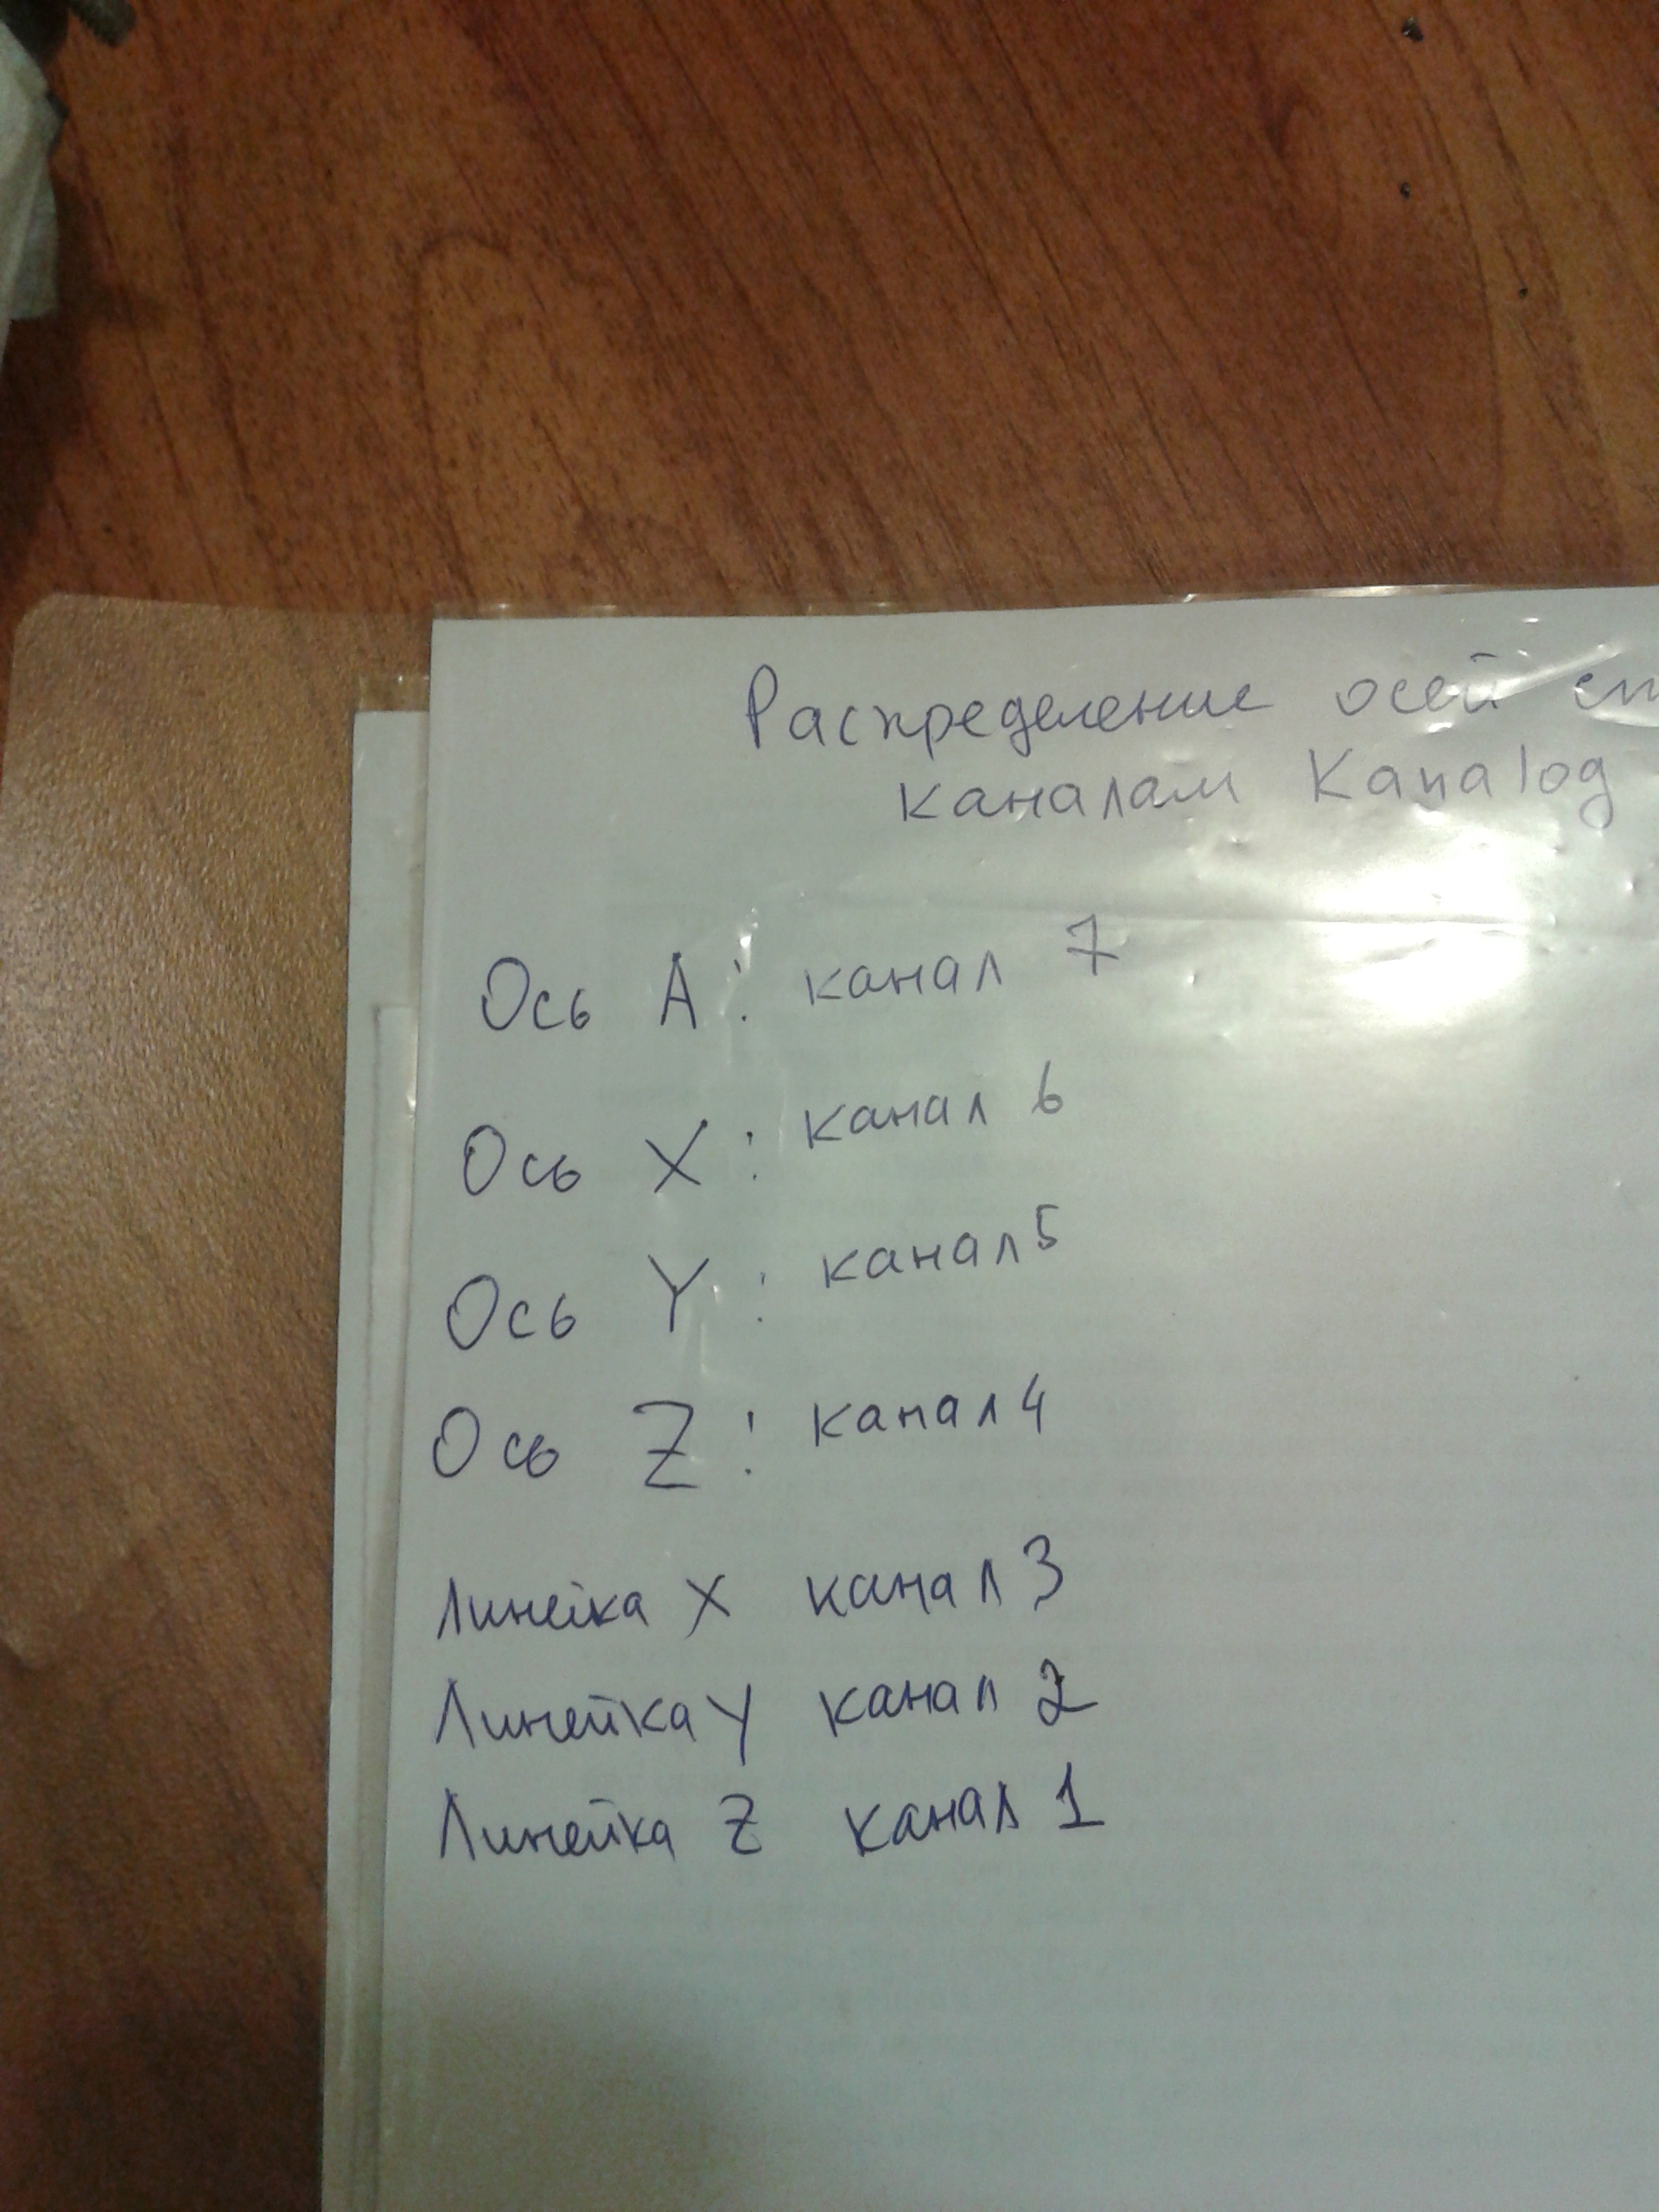 Распределение осей ст
каналам Kanalog
Ось A: канал 7
Ось X: канал 6
Ось Y: канал 5
Ось Z: канал 4
Линейка X канал 3
Линейка Y канал 2
Линейка Z канал 1